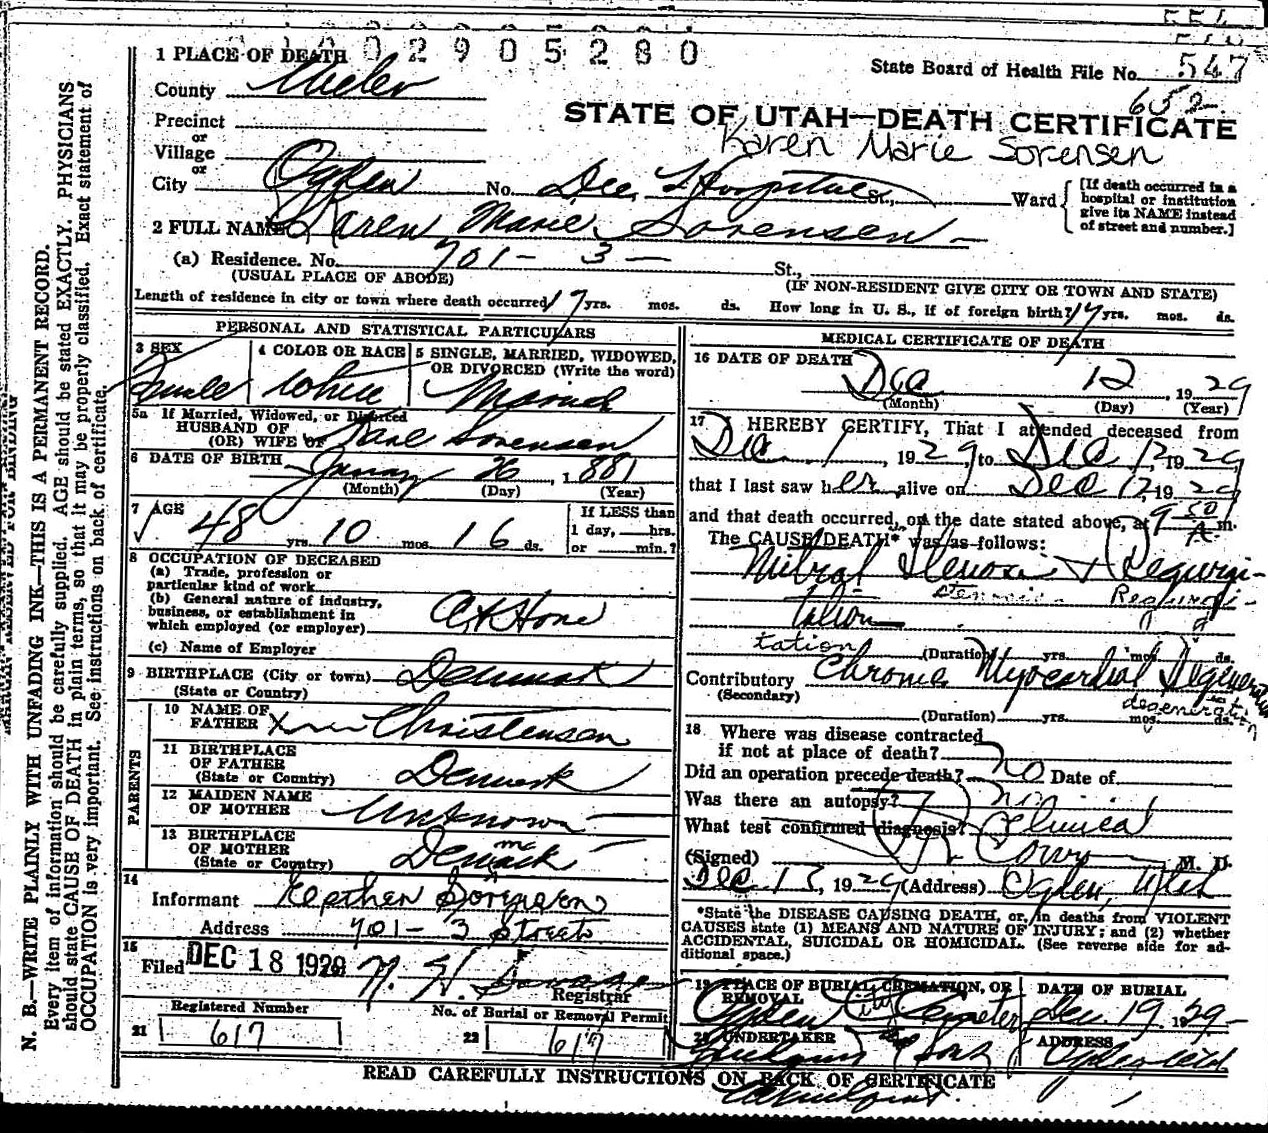 1002905280
1 PLACE OF DEATH
State Board of Health File No. 547
652
County Weber
STATE OF UTAH—DEATH CERTIFICATE
Precinct
Karen Marie Sorensen
or
Village
or
City Ogden No. Dee Hospital St., Ward
[If death occurred in a hospital or institution give its NAME instead of street and number.]
2 FULL NAME Karen Marie Sorensen
(a) Residence. No. 701 - 3 — St.,
(USUAL PLACE OF ABODE) (IF NON-RESIDENT GIVE CITY OR TOWN AND STATE)
Length of residence in city or town where death occurred 17 yrs. mos. ds. How long in U. S., if of foreign birth? 17 yrs. mos. ds.
PERSONAL AND STATISTICAL PARTICULARS
3 SEX Female
4 COLOR OR RACE White
5 SINGLE, MARRIED, WIDOWED, OR DIVORCED (Write the word) Married
5a If Married, Widowed, or Divorced
HUSBAND OF
(OR) WIFE OF Sorensen
6 DATE OF BIRTH January 26, 1881
(Month) (Day) (Year)
7 AGE 48 yrs. 10 mos. 16 ds.
If LESS than
1 day, hrs.
or min.?
8 OCCUPATION OF DECEASED
(a) Trade, profession or
particular kind of work
(b) General nature of industry,
business, or establishment in
which employed (or employer) At Home
(c) Name of Employer
9 BIRTHPLACE (City or town) Denmark
(State or Country)
PARENTS
10 NAME OF
FATHER Christensen
11 BIRTHPLACE
OF FATHER
(State or Country) Denmark
12 MAIDEN NAME
OF MOTHER Unknown
13 BIRTHPLACE
OF MOTHER
(State or Country) Denmark
14
Informant Sorenson
Address 701 - 3 Street
15
Filed DEC 18 1929
Registrar
Registered Number
21 617
No. of Burial or Removal Permit
22 617
MEDICAL CERTIFICATE OF DEATH
16 DATE OF DEATH Dec 12, 1929
(Month) (Day) (Year)
17 I HEREBY CERTIFY, That I attended deceased from
Dec 1, 1929, to Dec 12, 1929
that I last saw her alive on Dec 12, 1929
and that death occurred, on the date stated above, at 9 50 A. m.
The CAUSE DEATH* was as follows:
Mitral Stenosis + Regurgi-
Stenosis Regurgi-
tation
tation
(Duration) yrs. mos. ds.
Contributory Chronic Myocardial Degeneration
(Secondary)
degeneration
(Duration) yrs. mos. ds.
18 Where was disease contracted
if not at place of death?
Did an operation precede death? no Date of
Was there an autopsy? no
What test confirmed diagnosis? Clinical
(Signed) M. D.
Dec 13, 1929 (Address) Ogden, Utah
*State the DISEASE CAUSING DEATH, or, in deaths from VIOLENT
CAUSES state (1) MEANS AND NATURE OF INJURY; and (2) whether
ACCIDENTAL, SUICIDAL OR HOMICIDAL. (See reverse side for ad-
ditional space.)
19 PLACE OF BURIAL, CREMATION, OR
REMOVAL
Ogden City Cemetery
DATE OF BURIAL
Dec. 19, 1929
20 UNDERTAKER
ADDRESS
Ogden Utah
READ CAREFULLY INSTRUCTIONS ON BACK OF CERTIFICATE
N. B.—WRITE PLAINLY WITH UNFADING INK—THIS IS A PERMANENT RECORD.
Every item of information should be carefully supplied. AGE should be stated EXACTLY. PHYSICIANS
should state CAUSE OF DEATH in plain terms, so that it may be properly classified. Exact statement of
OCCUPATION is very important. See instructions on back of certificate.